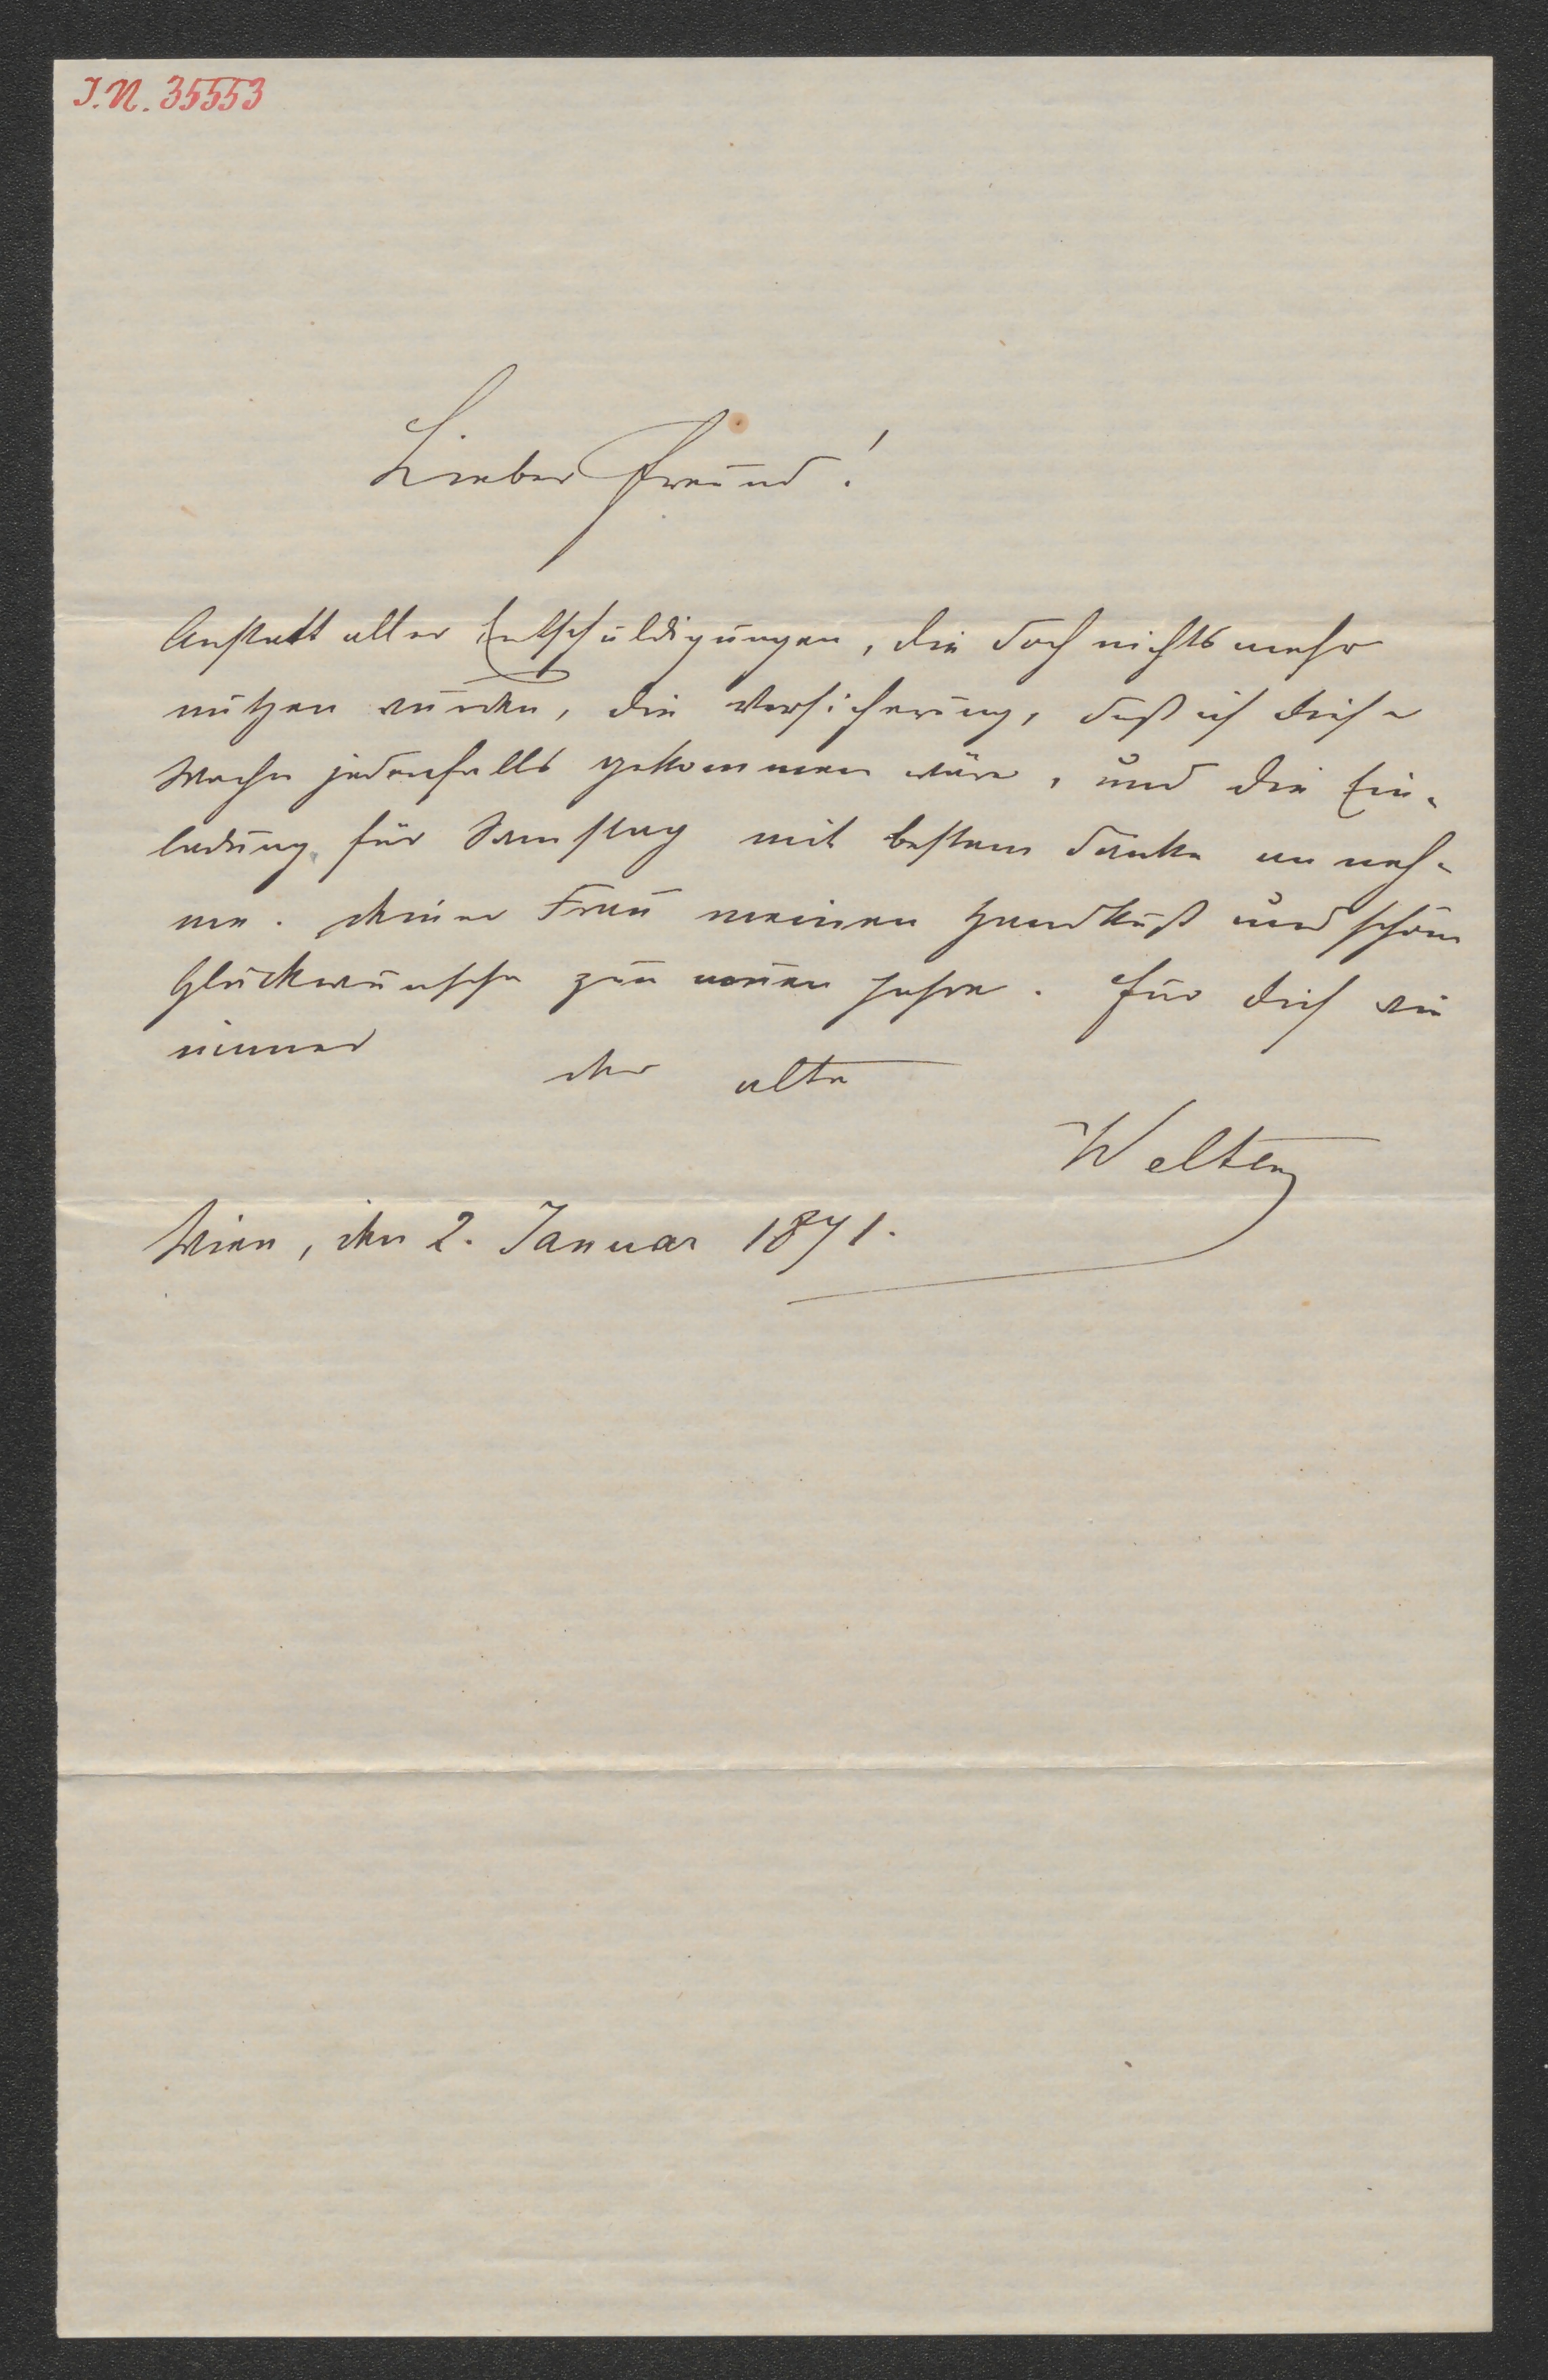 I.N. 35553
Lieber Freund!
Anstatt aller Entschuldigungen, die doch nichts mehr
nützen würden, die Versicherung, daß ich diese
Woche jedenfalls gekommen wäre, und die Ein-
ladung für Samstag mit bestem Danke anneh-
me. Deiner Frau meinen Handkuß und schöne
Glückwünsche zum neuen Jahre. Für dich wie
immer
der alte
Welten
Wien, den 2. Januar 1871.